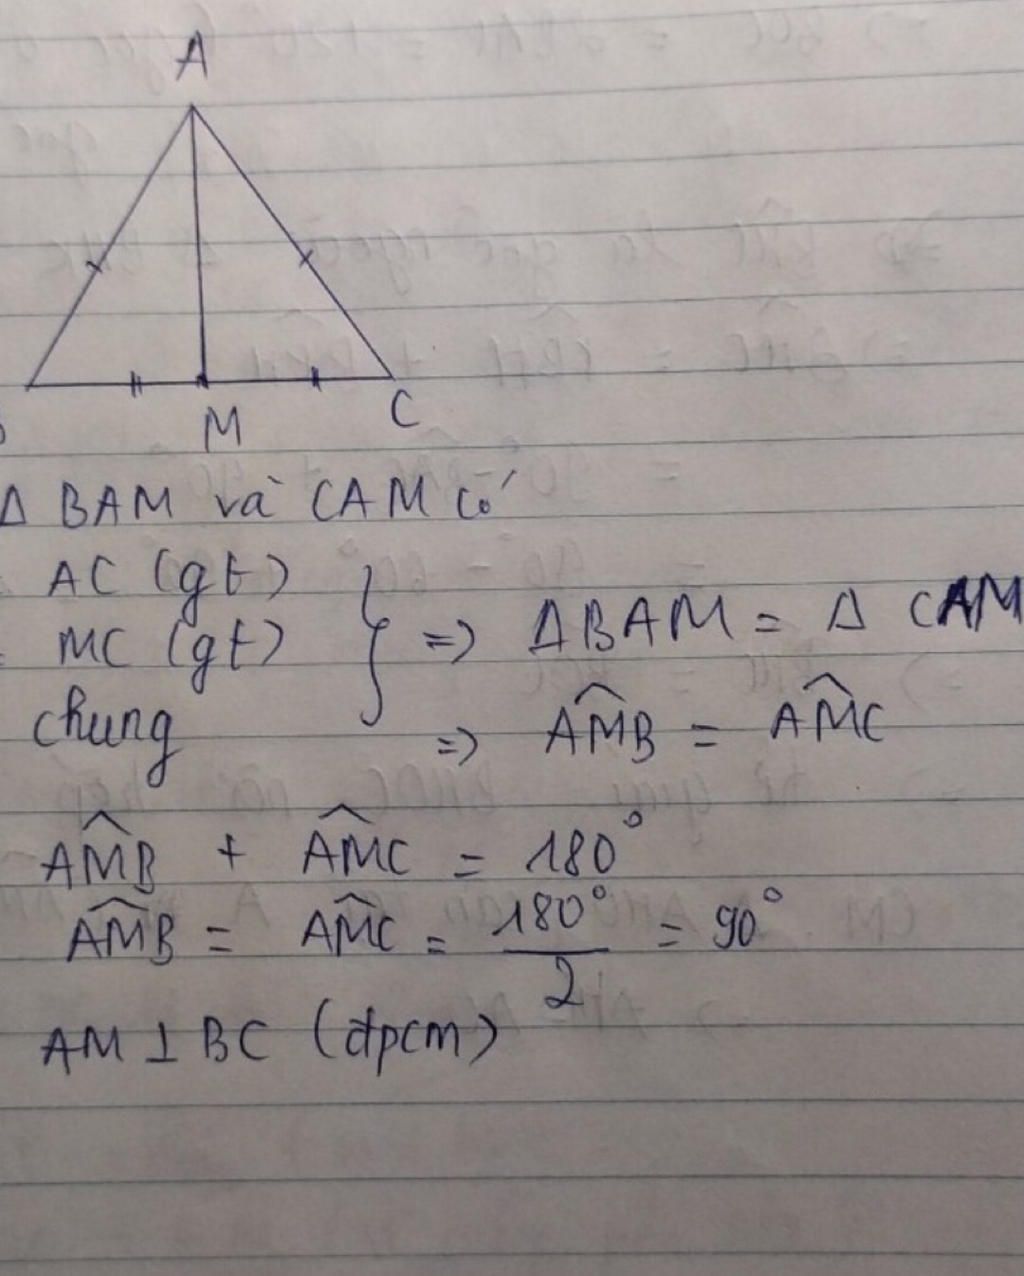 A
M
C
Δ BAM và CAM có
AC (gt)
= MC (gt) => ΔBAM = Δ CAM
chung => \widehat{AMB} = \widehat{AMC}
\widehat{AMB} + \widehat{AMC} = 180°
\widehat{AMB} = \widehat{AMC} = \frac{180°}{2} = 90°
AM ⊥ BC (đpcm)